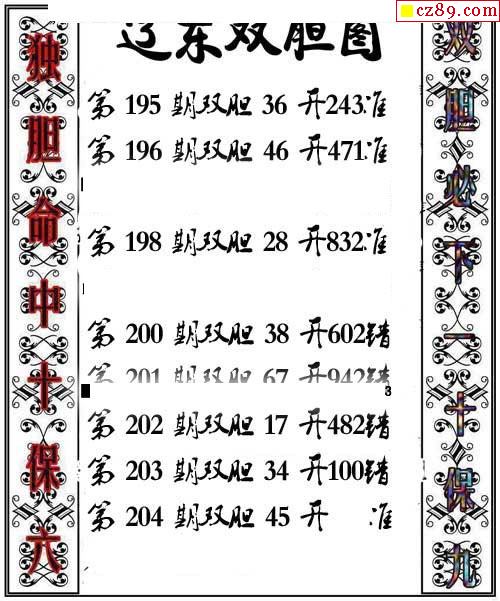 cz89.com
辽东双胆图
独胆命中十保六
双胆必下一十保九
第 195 期双胆 36 开243准
第 196 期双胆 46 开471准
第 198 期双胆 28 开832准
第 200 期双胆 38 开602错
第 201 期双胆 67 开942错
3
第 202 期双胆 17 开482错
第 203 期双胆 34 开100错
第 204 期双胆 45 开 准